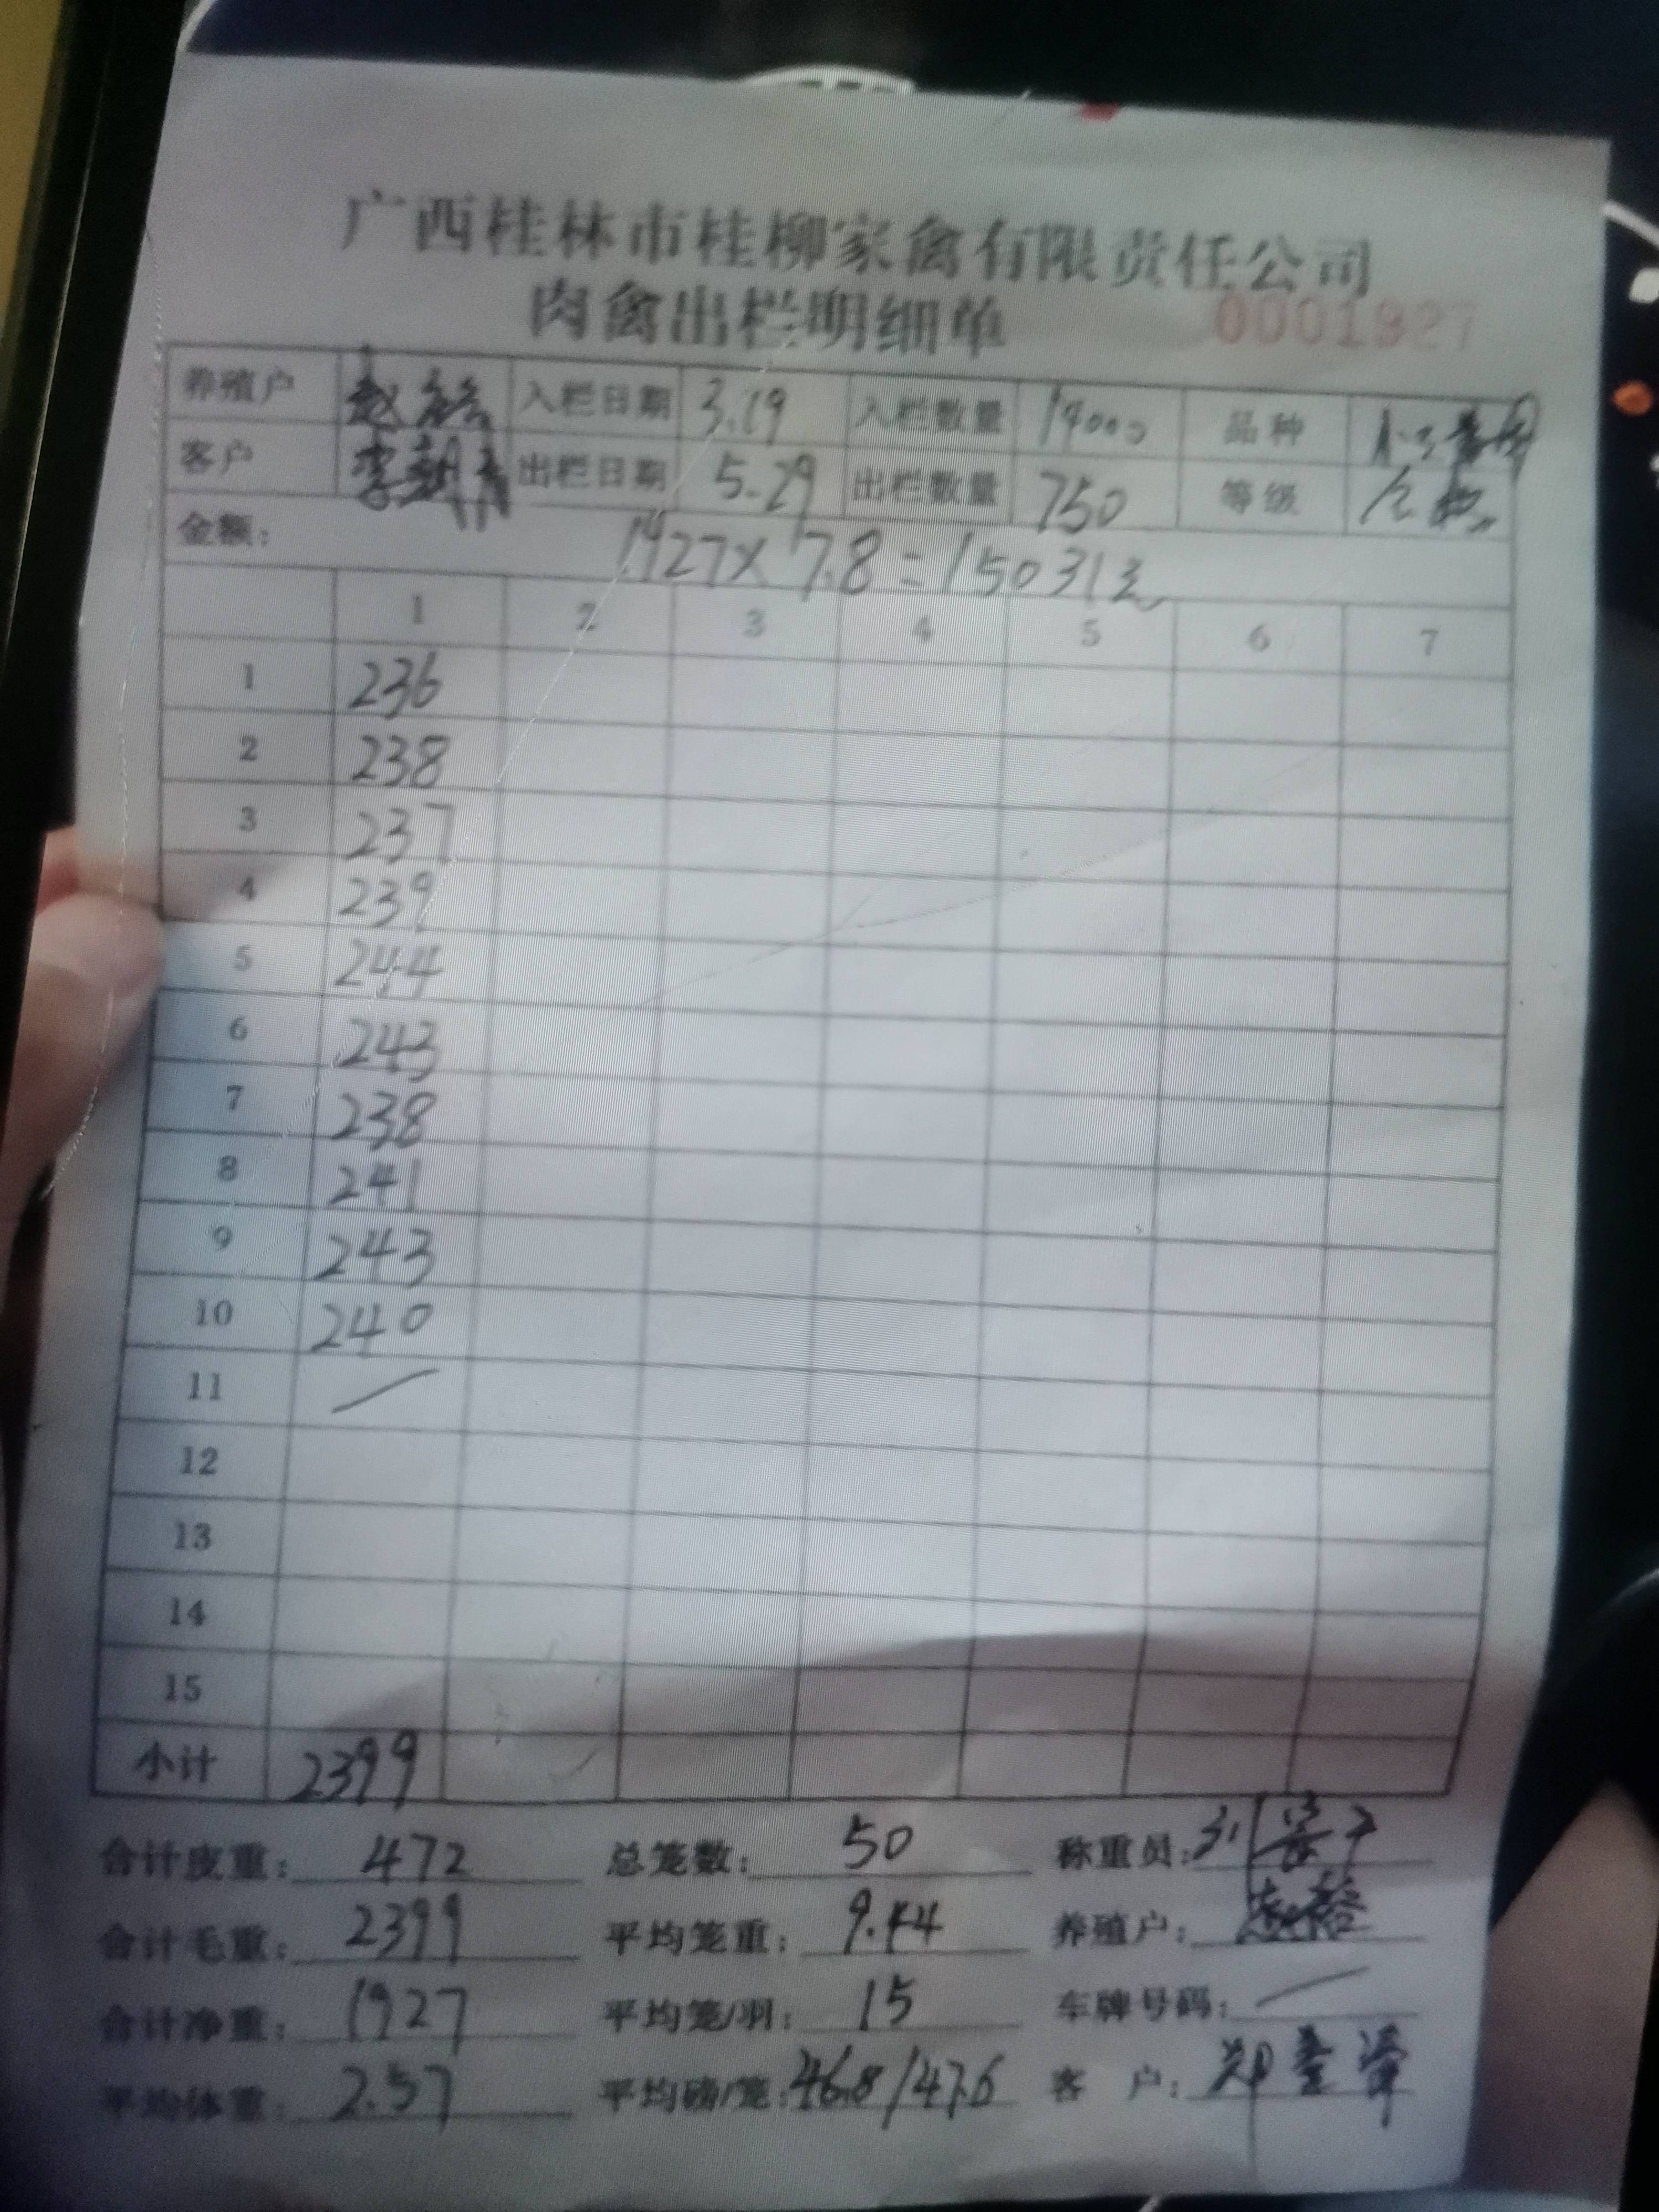 广西桂林市桂柳家禽有限责任公司
肉禽出栏明细单 0001927
养殖户 入栏日期 3.19 入栏数量 19000 品种
客户 出栏日期 5.29 出栏数量 750 等级
金额: 1927×7.8=15031元
1 2 3 4 5 6 7
1 236
2 238
3 237
4 239
5 244
6 243
7 238
8 241
9 243
10 240
11 /
12
13
14
15
小计 2399
合计皮重: 472 总笼数: 50 称重员:
合计毛重: 2399 平均笼重: 9.44 养殖户:
合计净重: 1927 平均笼/羽: 15 车牌号码: /
平均体重: 2.57 平均磅/笼: 46.8/47.6 客 户: